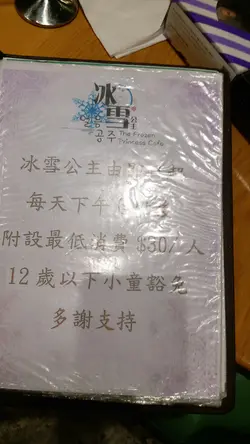 冰雪
公主
얼음
공주 The Frozen
Princess Cafe
冰雪公主由
每天下午
附設最低消費 $30/人
12歲以下小童豁免
多謝支持